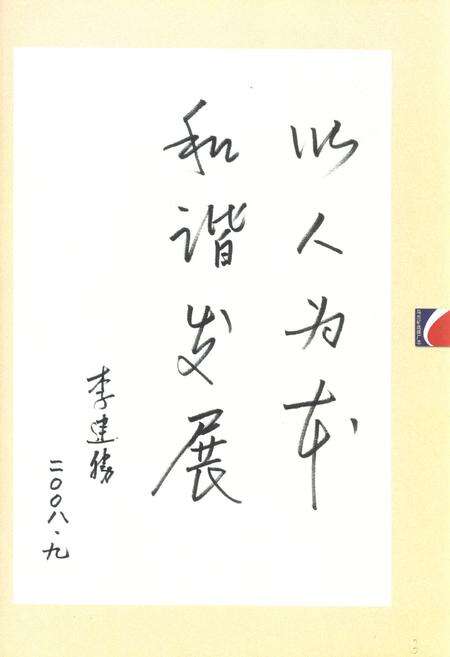 以人为本
和谐发展
李建胜
二〇〇八.九